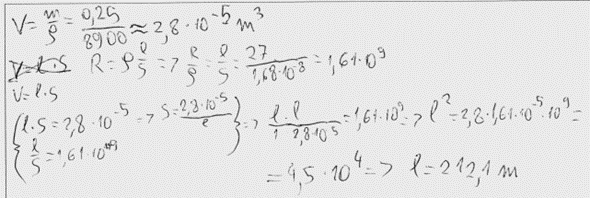 V = m/ρ = 0,25/8900 ≈ 2,8 · 10^-5 m^3
V = l · S R = ρ l/S => R/ρ = l/S = 27/(1,68·10^-8) = 1,61·10^9
V = l · S
{ l · S = 2,8 · 10^-5 => S = 2,8·10^-5/l } => l · l/(1 · 2,8·10^-5) = 1,61·10^9 => l^2 = 2,8·1,61·10^-5·10^9 =
{ l/S = 1,61·10^9
= 4,5 · 10^4 => l = 212,1 m